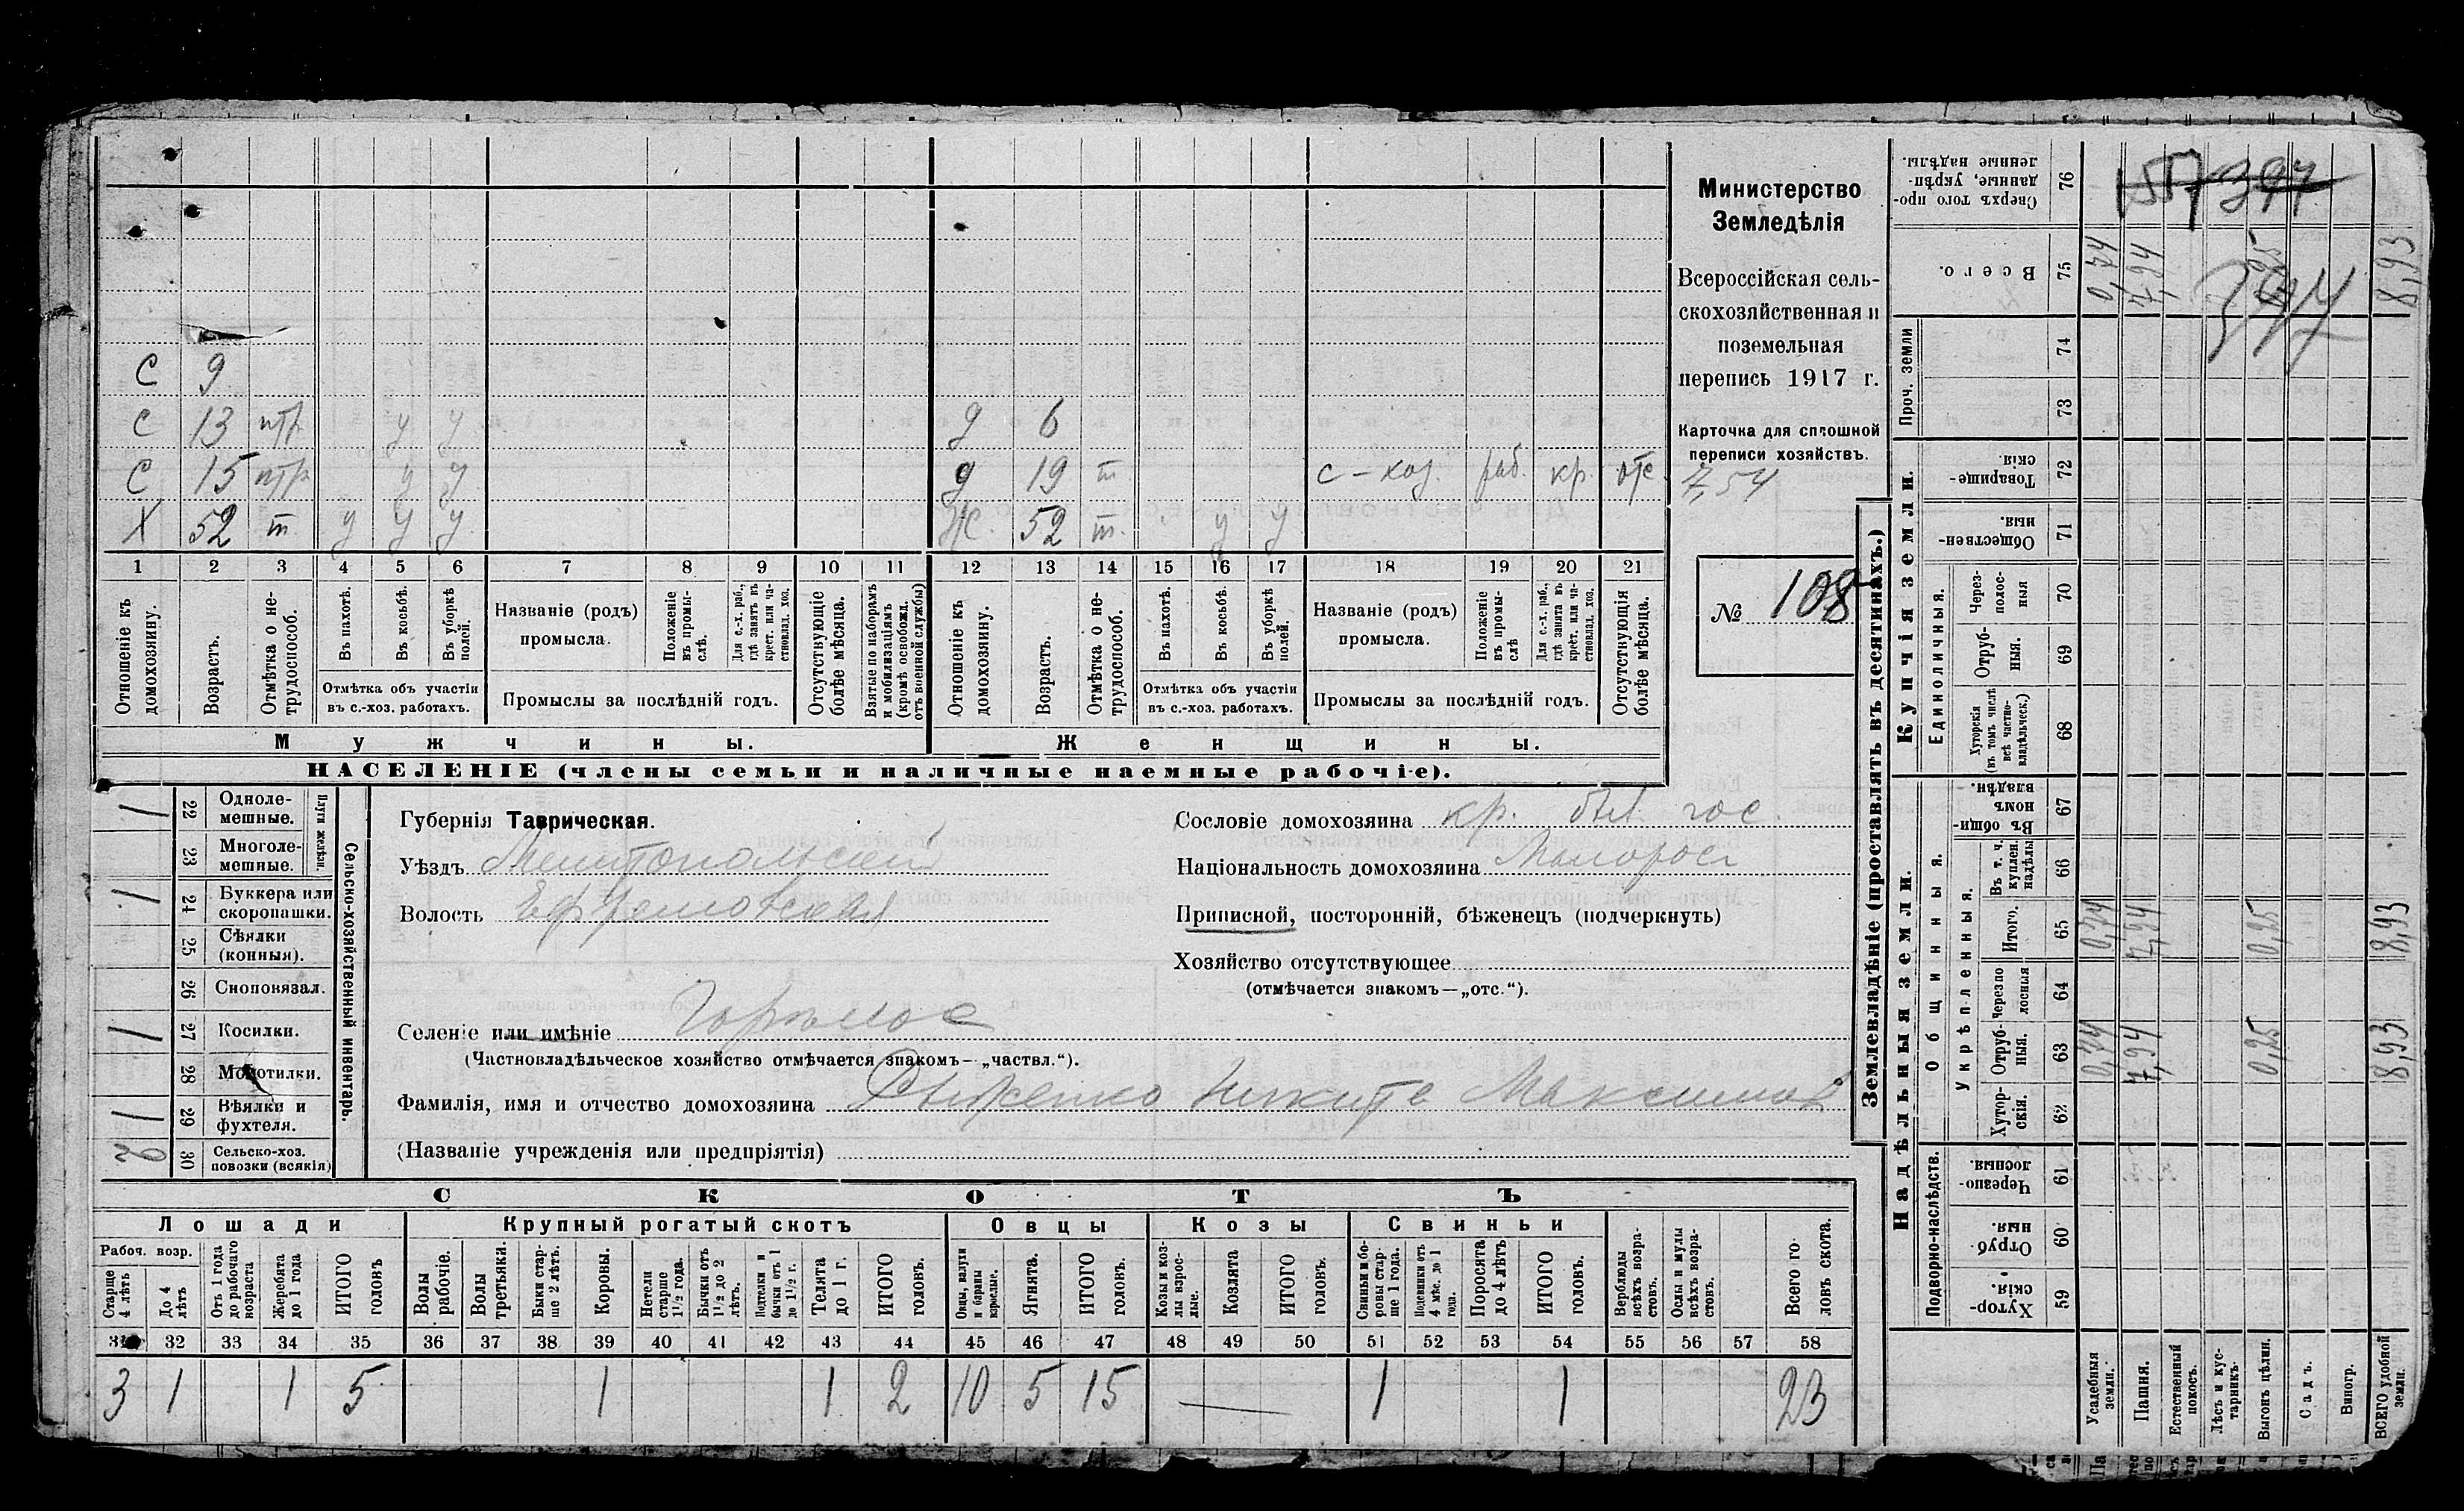 С 9
С 13 птр у у д 6
С 15 птр у у д 19 т с-хоз. раб. кр. отс
Х 52 т у у у Ж. 52 т. у у
1 2 3 4 5 6 7 8 9 10 11 12 13 14 15 16 17 18 19 20 21
Отношеніе къ домохозяину.
Возрастъ.
Отмѣтка о нетрудоспособ.
Въ пахотѣ.
Въ косьбѣ.
Въ уборкѣ полей.
Отмѣтка объ участіи въ с.-хоз. работахъ.
Названіе (родъ) промысла.
Положеніе въ промыслѣ.
Для с.-х. раб., гдѣ занятъ въ крест. или частновлад. хоз.
Промыслы за послѣдній годъ.
Отсутствующіе болѣе мѣсяца.
Взятые по наборамъ и мобилизаціямъ (кромѣ освобожд. отъ военной службы)
Отношеніе къ домохозяину.
Возрастъ.
Отмѣтка о нетрудоспособ.
Въ пахотѣ.
Въ косьбѣ.
Въ уборкѣ полей.
Отмѣтка объ участіи въ с.-хоз. работахъ.
Названіе (родъ) промысла.
Положеніе въ промыслѣ
Для с.-х. раб., гдѣ занята въ крест. или частновлад. хоз.
Промыслы за послѣдній годъ.
Отсутствующія болѣе мѣсяца.
Мужчины.
Женщины.
НАСЕЛЕНІЕ (члены семьи и наличные наемные рабочіе).
Министерство
Земледѣлія
Всероссійская сель-
скохозяйственная и
поземельная
перепись 1917 г.
Карточка для сплошной
переписи хозяйствъ.
7,54
№ 108
1 22 Однолемешные.
23 Многолемешные.
Плуги желѣзн.
1 24 Буккера или скоропашки.
25 Сѣялки (конныя).
26 Сноповязал.
1 27 Косилки.
28 Молотилки.
1 29 Вѣялки и фухтеля.
30 Сельско-хоз. повозки (всякія)
Сельско-хозяйственный инвентарь.
Губернія Таврическая.
Уѣздъ Мелитопольскій
Волость Ефремовская
Сословіе домохозяина кр. был. гос.
Національность домохозяина Малоросъ
Приписной, посторонній, бѣженецъ (подчеркнуть)
Хозяйство отсутствующее
(отмѣчается знакомъ—„отс.“).
Селеніе или имѣніе
(Частновладѣльческое хозяйство отмѣчается знакомъ—„частвл.“).
Фамилія, имя и отчество домохозяина Рыженко Никита Максимов
(Названіе учрежденія или предпріятія)
СКОТЪ
Лошади Крупный рогатый скотъ Овцы Козы Свиньи
Рабоч. возр.
Старше 4 лѣтъ
До 4 лѣтъ
Отъ 1 года до рабочаго возраста
Жеребята до 1 года
ИТОГО головъ
Волы рабочіе.
Волы третьяки.
Быки старше 2 лѣтъ.
Коровы.
Нетели старше 1½ года.
Бычки отъ 1½ до 2 лѣтъ.
Подтелки и бычки отъ 1 до 1½ г.
Телята до 1 г.
ИТОГО головъ.
Овцы, валухи и бараны взрослые.
Ягнята.
ИТОГО головъ.
Козы и козлы взрослые.
Козлята
ИТОГО головъ.
Свиньи и боровы старше 1 года.
Подсвинки отъ 4 мѣс. до 1 года.
Поросята до 4 лѣтъ
ИТОГО головъ.
Верблюды всѣхъ возрастовъ.
Ослы и мулы всѣхъ возрастовъ.
Всего головъ скота.
31 32 33 34 35 36 37 38 39 40 41 42 43 44 45 46 47 48 49 50 51 52 53 54 55 56 57 58
3 1 1 5 1 1 2 10 5 15 — 1 1 23
Землевладѣніе (проставлять въ десятинахъ.)
Купчія земли.
Надѣльныя земли.
Сверхъ того проданные, укрѣпленные надѣлы. 76 1557 397
Всего. 75 0,74 7,94 8,93
397
Проч. земли 74
73
Товарищескія. 72
Общественныя. 71
Единоличныя.
Черезполосныя 70
Отрубныя. 69
Хуторскія (въ томъ числѣ всѣ частновладѣльческ.) 68
Общинныя.
Въ общинномъ владѣн. 67
Укрѣпленныя.
Въ т. ч. куплен. надѣлы 66
Итого. 65 0,74 7,94 0,25 8,93
Черезполосныя 64
Отрубныя. 63 0,74 7,94 0,25 8,93
Хуторскія. 62
Подворно-наслѣдств.
Черезполосныя. 61
Отрубныя. 60
Хуторскія. 59
Усадебныя земли.
Пашня.
Естественный покосъ.
Лѣсъ и кустарникъ.
Выгонъ цѣлин.
Садъ.
Виногр.
ВСЕГО удобной земли.